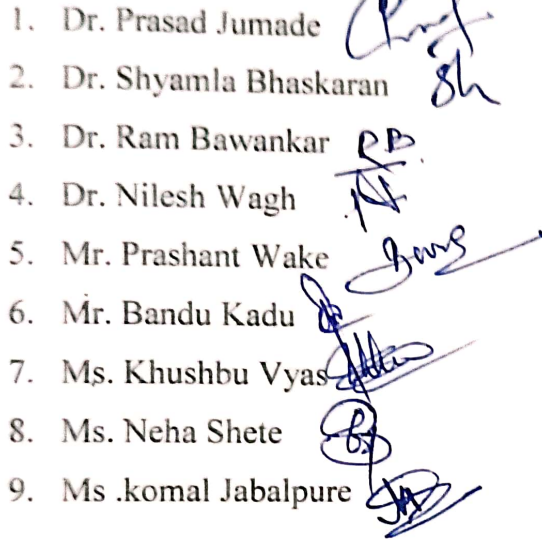 1. Dr. Prasad Jumade
2. Dr. Shyamla Bhaskaran Sh
3. Dr. Ram Bawankar RB
4. Dr. Nilesh Wagh
5. Mr. Prashant Wake
6. Mr. Bandu Kadu
7. Ms. Khushbu Vyas
8. Ms. Neha Shete
9. Ms .komal Jabalpure